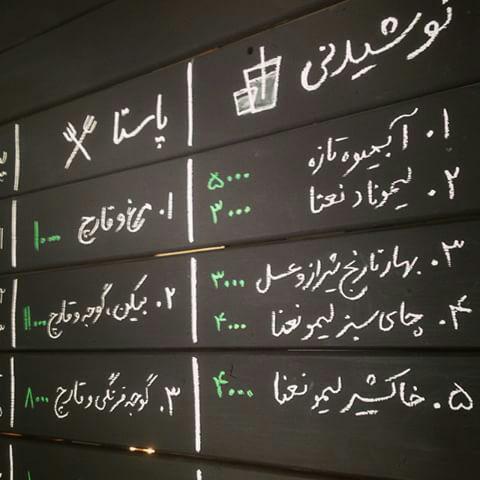 نوشیدنی
۱. آبمیوه تازه ۵۰۰۰
۲. لیموناد نعنا ۳۰۰۰
۳. بهار نارنج شیراز و عسل ۳۰۰۰
۴. چای سبز لیمو نعنا ۴۰۰۰
۵. خاکشیر لیمو نعنا ۴۰۰۰
پاستا
۱. مرغ و قارچ ۱۰۰۰۰
۲. بیکن، گوجه و قارچ ۱۱۰۰۰
۳. گوجه فرنگی و قارچ ۸۰۰۰